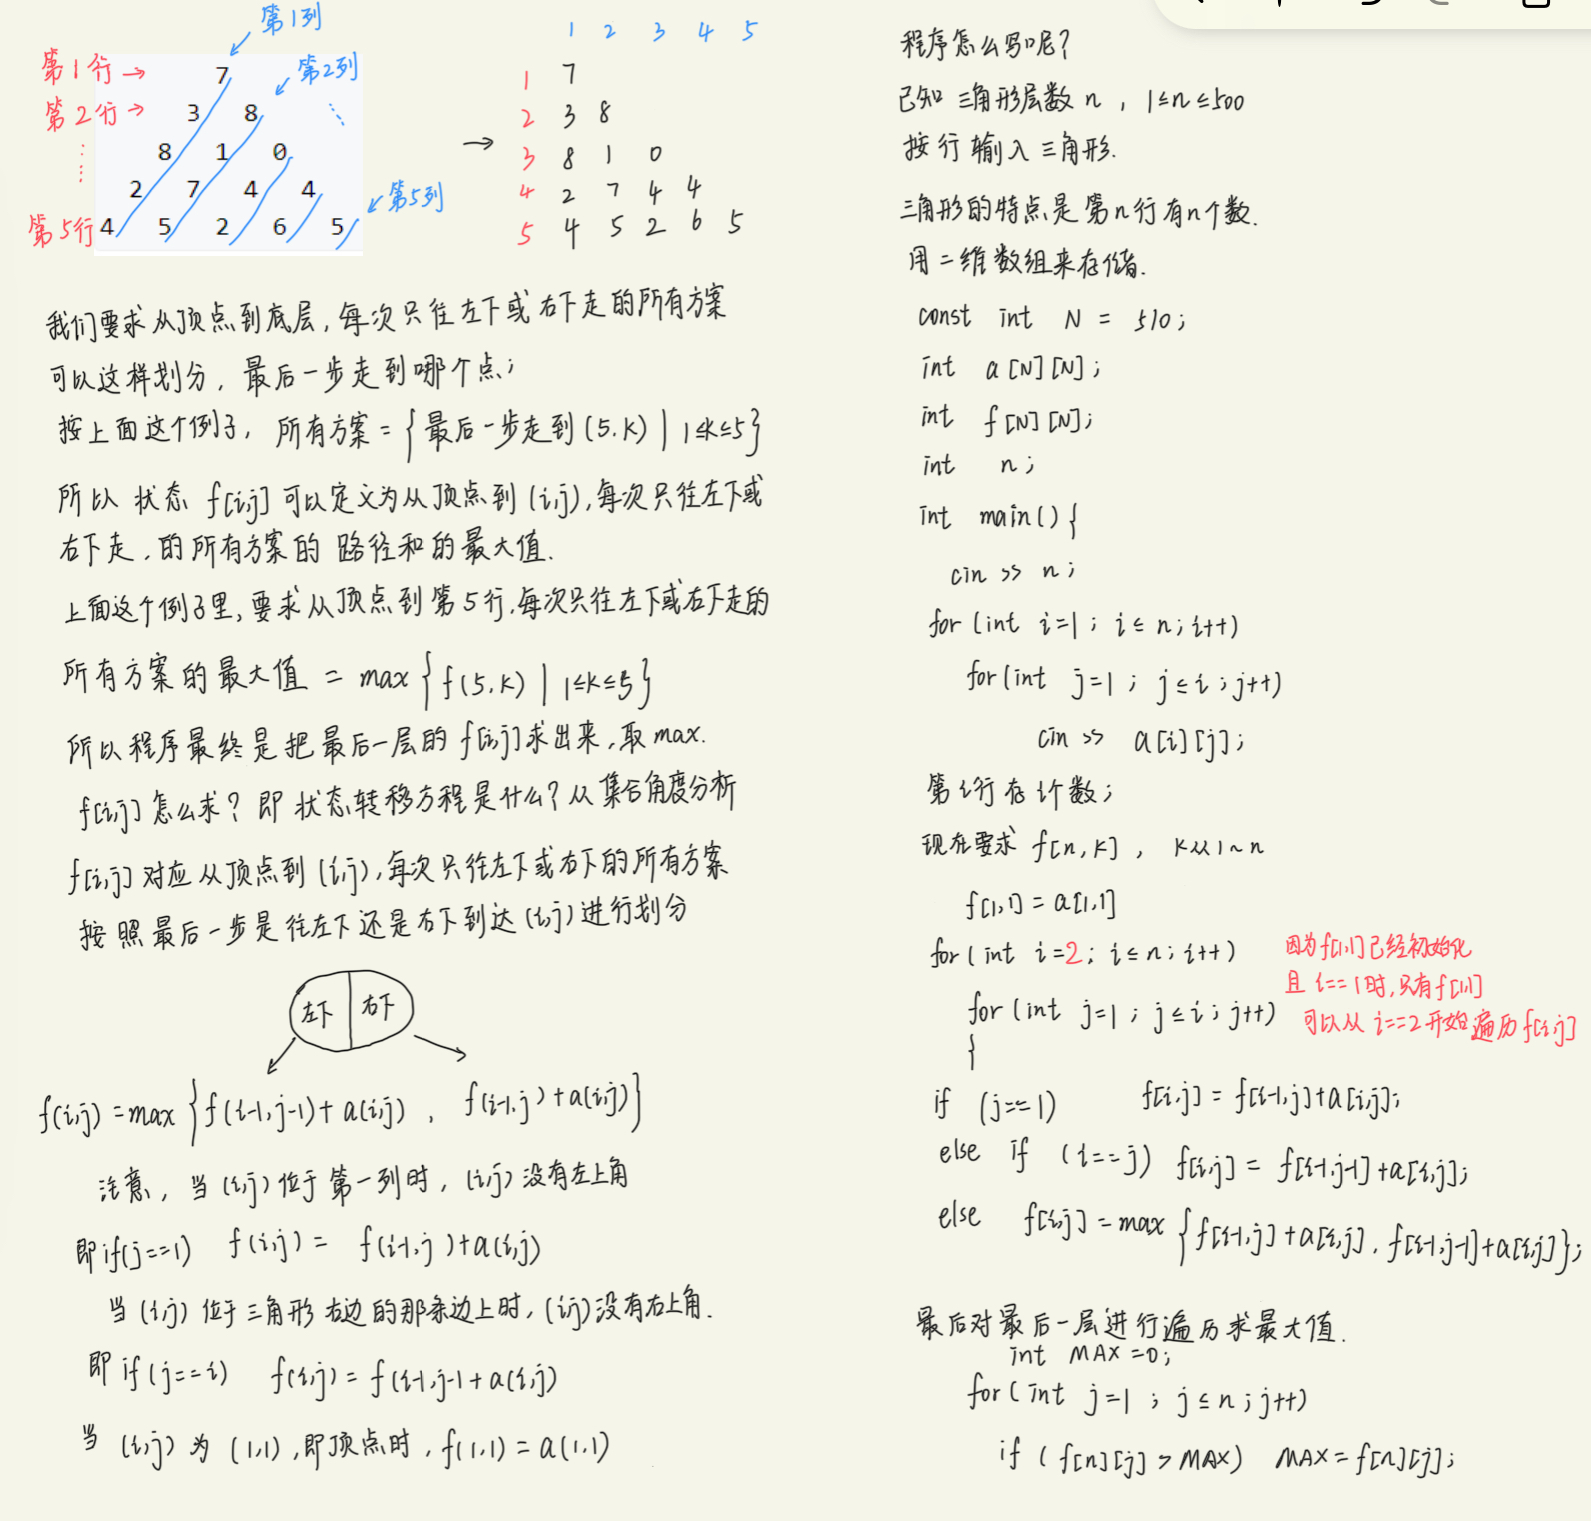 第1列
第1行→ 7 第2列
第2行→ 3 8
8 1 0
2 7 4 4 第5列
第5行 4 5 2 6 5
→
1 2 3 4 5
1 7
2 3 8
3 8 1 0
4 2 7 4 4
5 4 5 2 6 5
我们要求从顶点到底层,每次只往左下或右下走的所有方案
可以这样划分,最后一步走到哪个点;
按上面这个例子,所有方案={最后一步走到(5.k)|1≤k≤5}
所以 状态 f[i,j] 可以定义为从顶点到(i,j),每次只往左下或
右下走,的所有方案的 路径和的最大值.
上面这个例子里,要求从顶点到第5行,每次只往左下或右下走的
所有方案的最大值 = max {f(5.k) | 1≤k≤5}
所以程序最终是把最后一层的f[i,j]求出来,取max.
f[i,j] 怎么求? 即 状态转移方程是什么? 从集合角度分析
f[i,j] 对应从顶点到(i,j),每次只往左下或右下的所有方案
按照最后一步是往左下还是右下到达(i,j)进行划分
左下 右下
f(i,j) = max {f(i-1,j-1)+a(i,j) , f(i-1,j)+a(i,j)}
注意,当(i,j)位于第一列时,(i,j)没有左上角
即if(j==1) f(i,j) = f(i-1,j)+a(i,j)
当(i,j)位于三角形右边的那条边上时,(i,j)没有右上角.
即 if(j==i) f(i,j) = f(i-1,j-1+a(i,j)
当 (i,j) 为 (1,1),即顶点时,f(1,1) = a(1,1)
程序怎么写呢?
已知 三角形层数 n , 1≤n≤500
按行输入三角形.
三角形的特点是第n行有n个数.
用二维数组来存储.
const int N = 510;
int a[N][N];
int f[N][N];
int n;
int main(){
cin >> n;
for(int i=1; i≤n; i++)
for(int j=1; j≤i; j++)
cin >> a[i][j];
第i行存i个数;
现在要求 f[n,k] , k从1~n
f[1,1] = a[1,1]
for(int i=2; i≤n; i++)
因为f[1,1]已经初始化
且 i==1时,只有f[1,1]
可以从 i==2开始遍历f[i,j]
for(int j=1; j≤i; j++)
{
if (j==1) f[i,j] = f[i-1,j]+a[i,j];
else if (i==j) f[i,j] = f[i-1,j-1]+a[i,j];
else f[i,j] = max {f[i-1,j]+a[i,j], f[i-1,j-1]+a[i,j]};
最后对最后一层进行遍历求最大值.
int MAX=0;
for(int j=1; j≤n; j++)
if (f[n][j] > MAX) MAX=f[n][j];